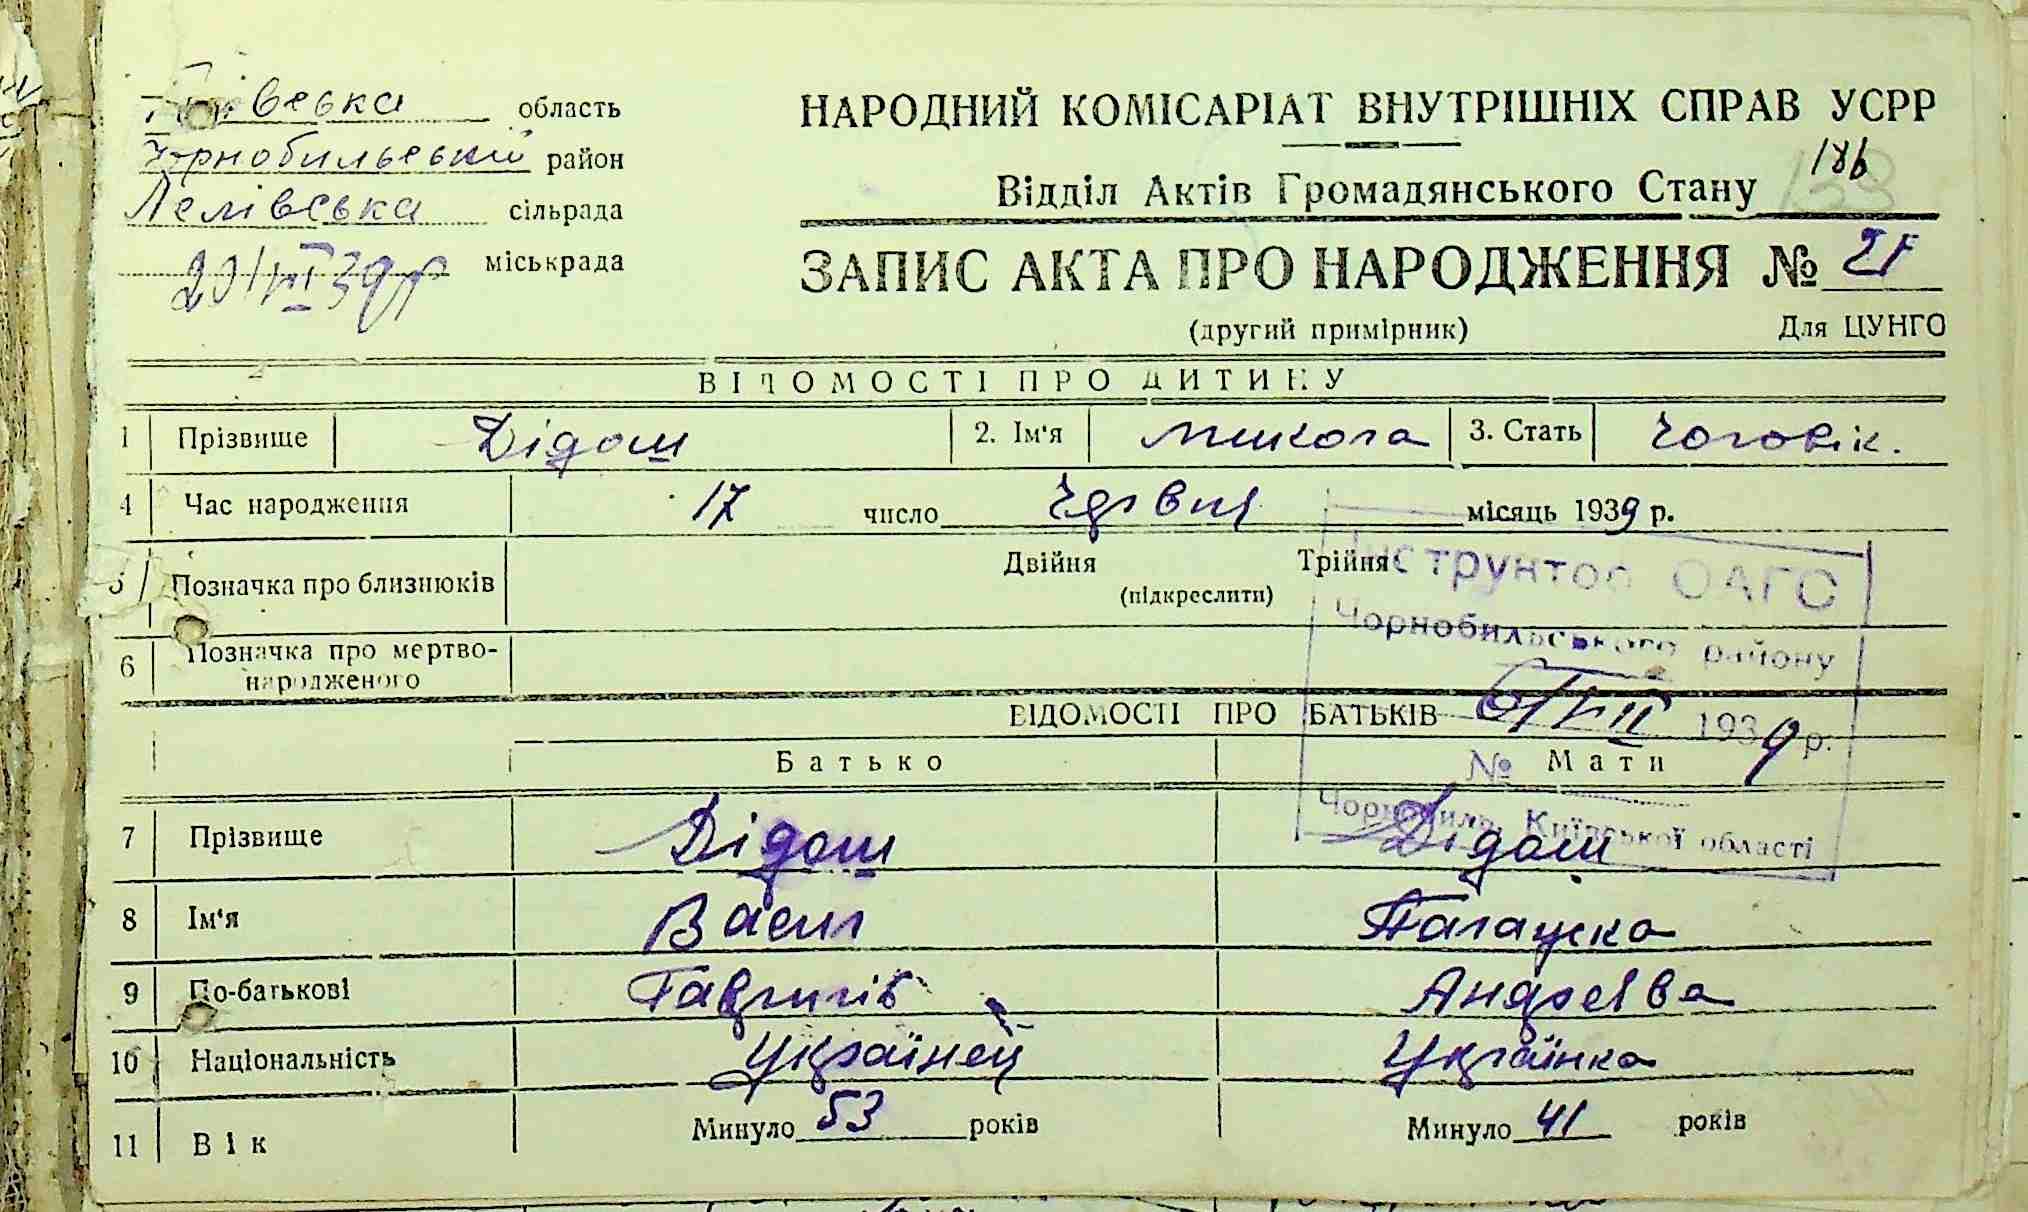 Київська область
Чорнобильський район
Лелівська сільрада
20/VI 39 р міськрада
НАРОДНИЙ КОМІСАРІАТ ВНУТРІШНІХ СПРАВ УСРР
Відділ Актів Громадянського Стану 186
ЗАПИС АКТА ПРО НАРОДЖЕННЯ №
(другий примірник) Для ЦУНГО
ВІДОМОСТІ ПРО ДИТИНУ
1 Прізвище Дідаш 2. Ім'я Микола 3. Стать Чоловік.
4 Час народження 17 число Червня місяць 1939 р.
5 Позначка про близнюків Двійня Трійня
(підкреслити)
6 Позначка про мертво-
народженого
Інструктор ОАГС
Чорнобильського району
1939 р.
№
Чорнобиль, Київської області
ВІДОМОСТІ ПРО БАТЬКІВ
Батько Мати
7 Прізвище Дідаш Дідаш
8 Ім'я Васил Палажка
9 По-батькові Гаврилів Андреєва
10 Національність Українец Українка
11 Вік Минуло 53 років Минуло 41 років